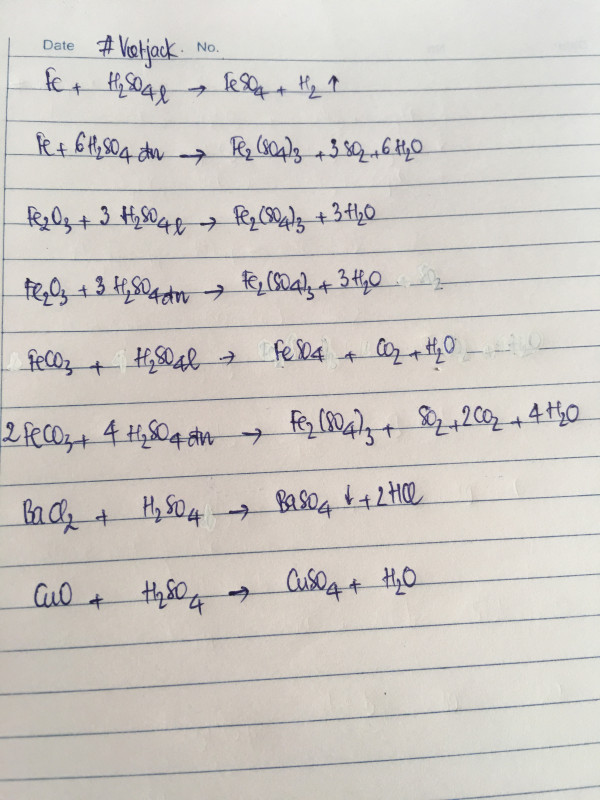 Date #Vietjack. No.
Fe + H₂SO₄ l → FeSO₄ + H₂ ↑
Fe + 6H₂SO₄ đn → Fe₂(SO₄)₃ + 3SO₂ + 6H₂O
Fe₂O₃ + 3 H₂SO₄ l → Fe₂(SO₄)₃ + 3H₂O
Fe₂O₃ + 3 H₂SO₄ đn → Fe₂(SO₄)₃ + 3H₂O
FeCO₃ + H₂SO₄ l → FeSO₄ + CO₂ + H₂O
2FeCO₃ + 4 H₂SO₄ đn → Fe₂(SO₄)₃ + SO₂ + 2CO₂ + 4H₂O
BaCl₂ + H₂SO₄ → BaSO₄ ↓ + 2HCl
CuO + H₂SO₄ → CuSO₄ + H₂O